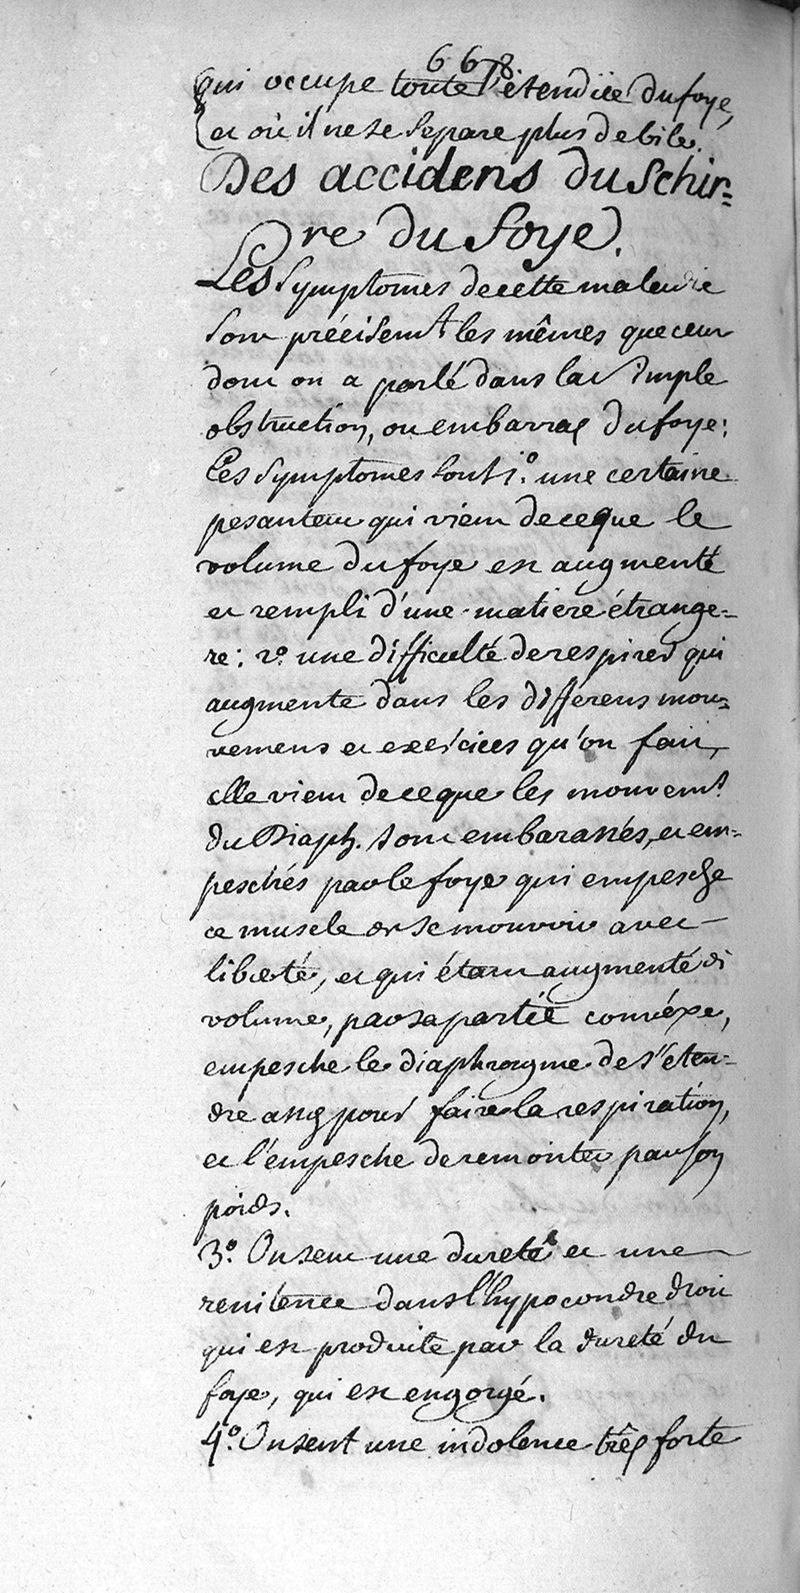 668
qui occupe toute l'étendüe du foye,
et où il ne se separe plus de bile.
Des accidens du Schir=
re du foye.
Les symptomes de cette maladie
sont précisemt les mêmes que ceux
dont on a parlé dans la simple
obstruction, ou embarras du foye:
Ces symptomes sont 1.º une certaine
pesanteur qui vient de ce que le
volume du foye est augmenté
et rempli d'une matiere étrange=
re: 2º. une difficulté de respirer qui
augmente dans les differens mou=
vemens et exercices qu'on fait,
elle vient de ce que les mouvemts
du Diaph. sont embarassés, et em=
peschés par le foye qui empesche
ce muscle de se mouvoir avec
liberté, et qui étant augmenté de
volume, par sa partie convéxe,
empesche le diaphragme de s'éten=
dre assés pour faire la respiration,
et l'empesche de remonter par son
poids.
3.º On sent une dureté et une
renitence dans l'hypocondre droit
qui est produite par la dureté du
foye, qui est engorgé.
4.º On sent une indolence très forte